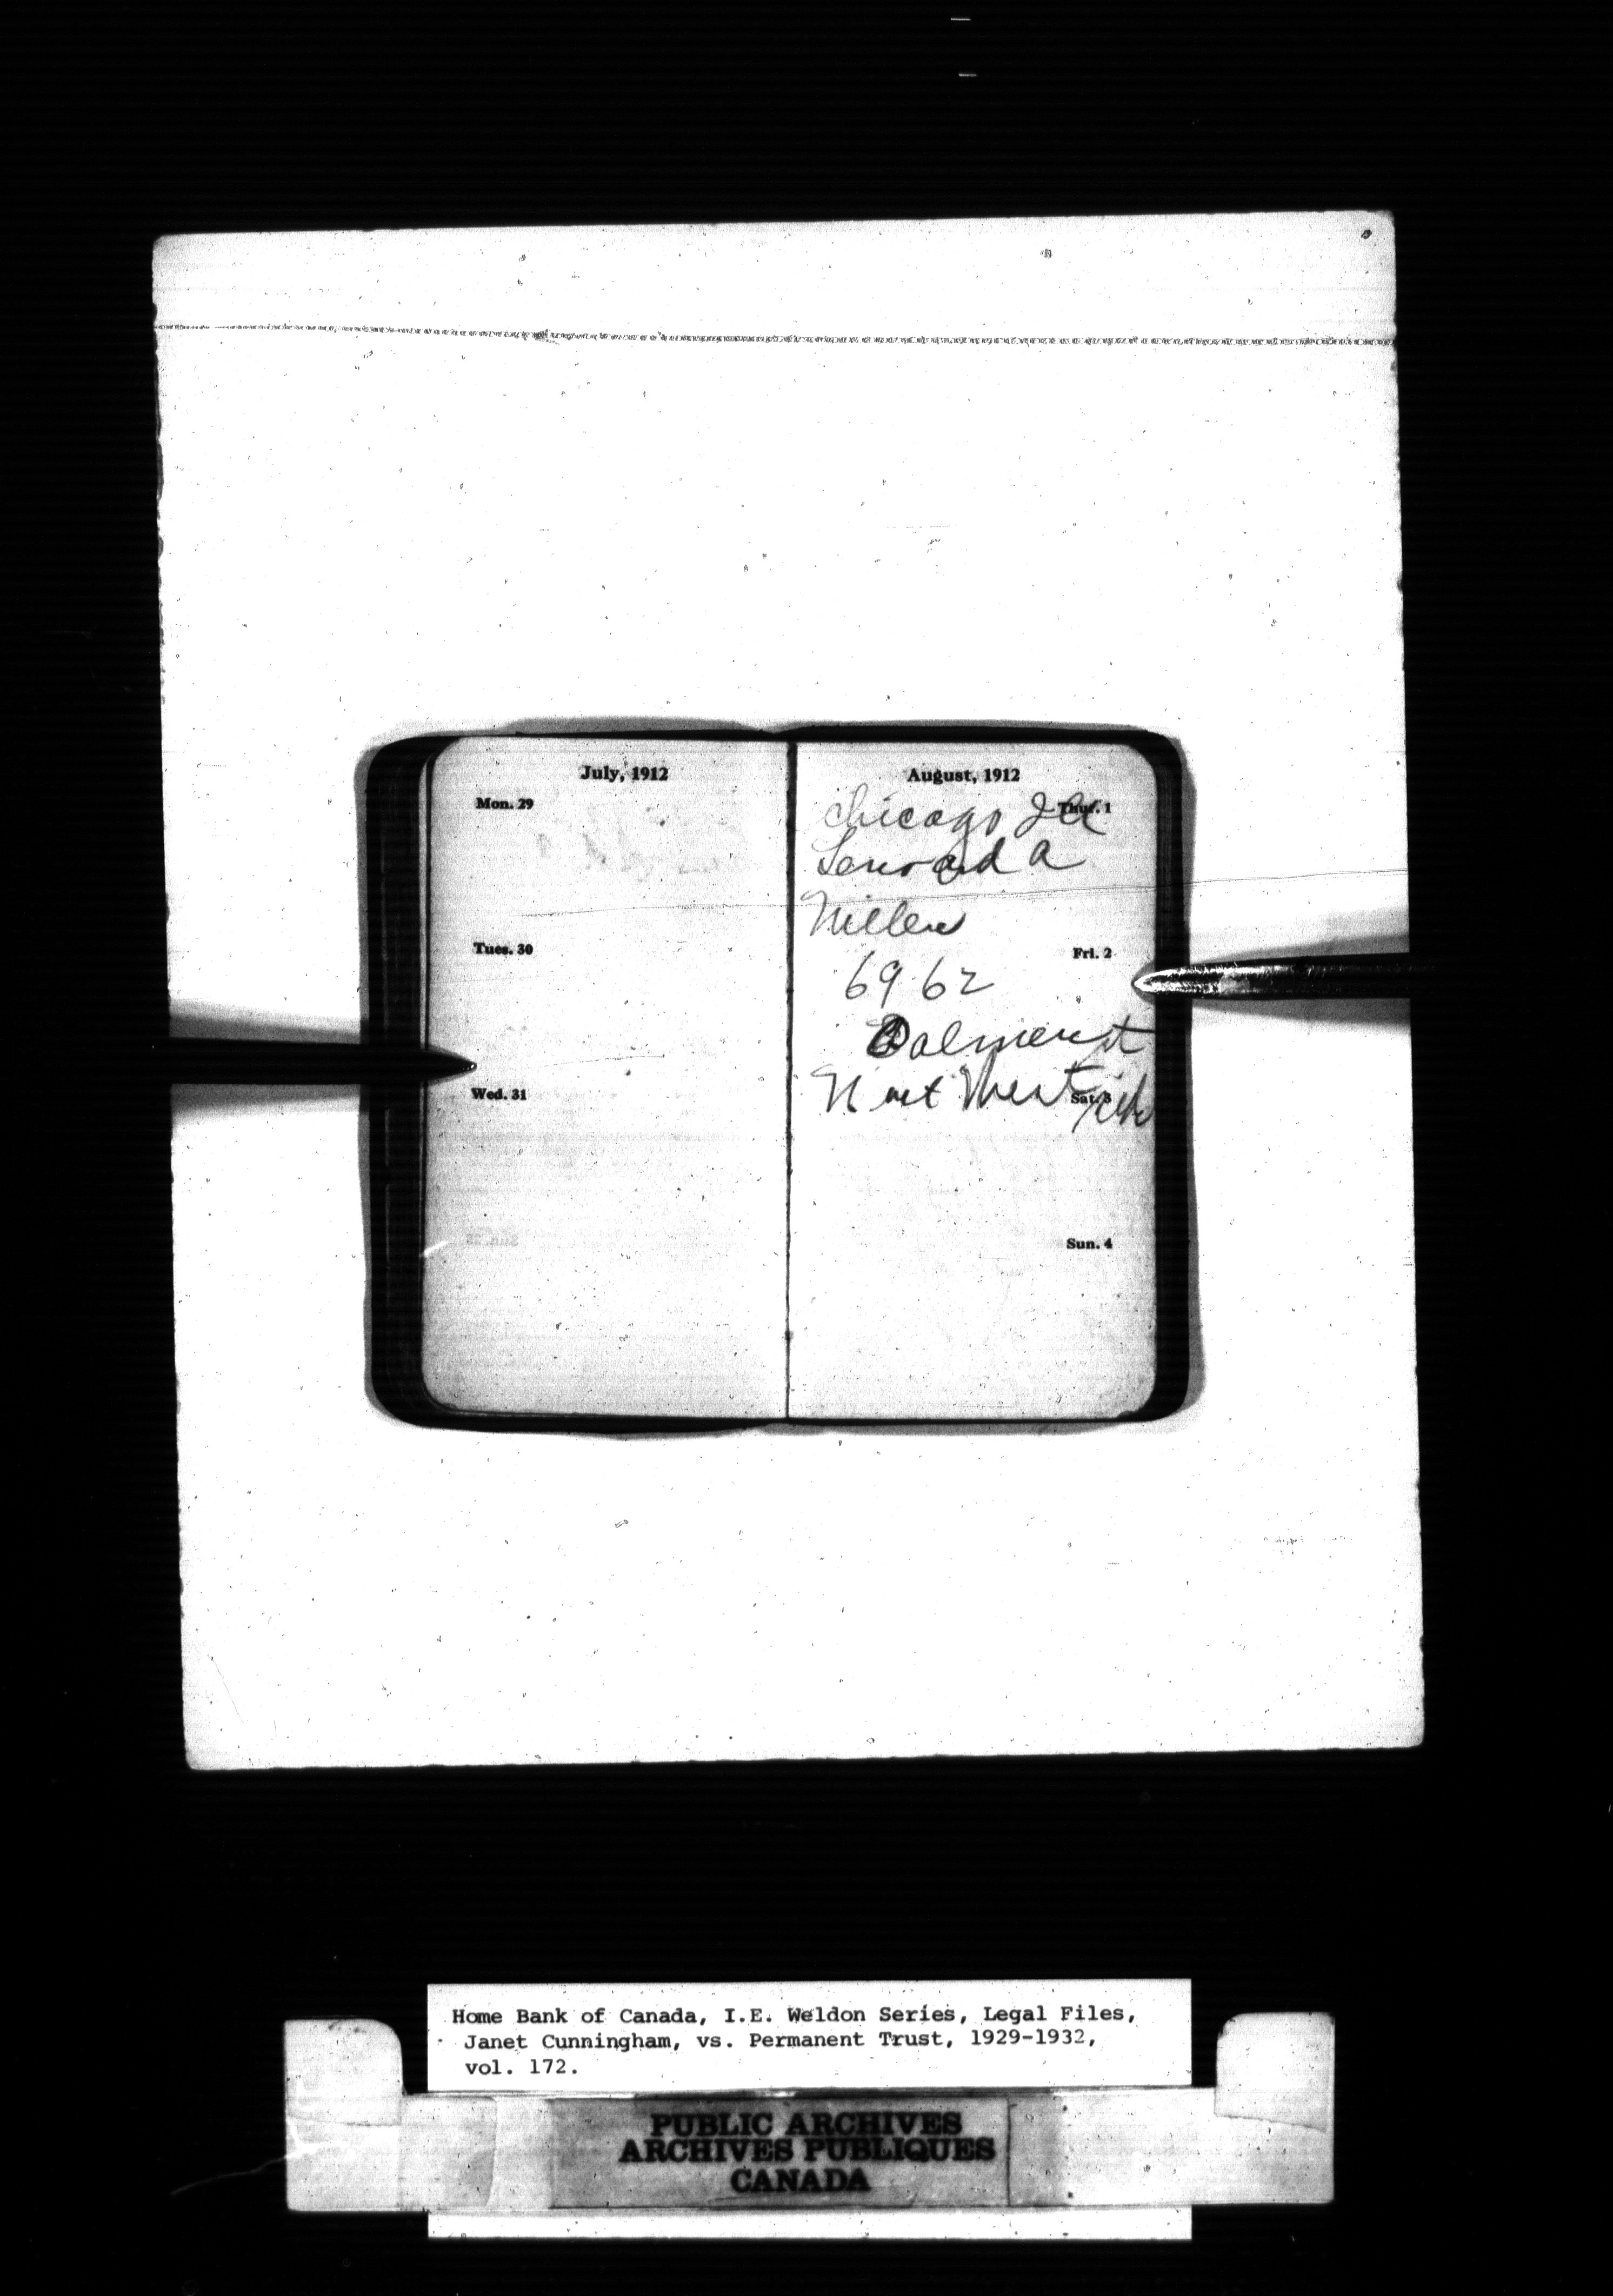 July, 1912
Mon. 29
Tues. 30
Wed. 31
August, 1912
Thur. 1
Chicago Ill
Lenoard A
Miller
Fri. 2
6962
Sat. 3
Sun. 4
Home Bank of Canada, I.E. Weldon Series, Legal Files,
Janet Cunningham, vs. Permanent Trust, 1929-1932,
vol. 172.
PUBLIC ARCHIVES
ARCHIVES PUBLIQUES
CANADA